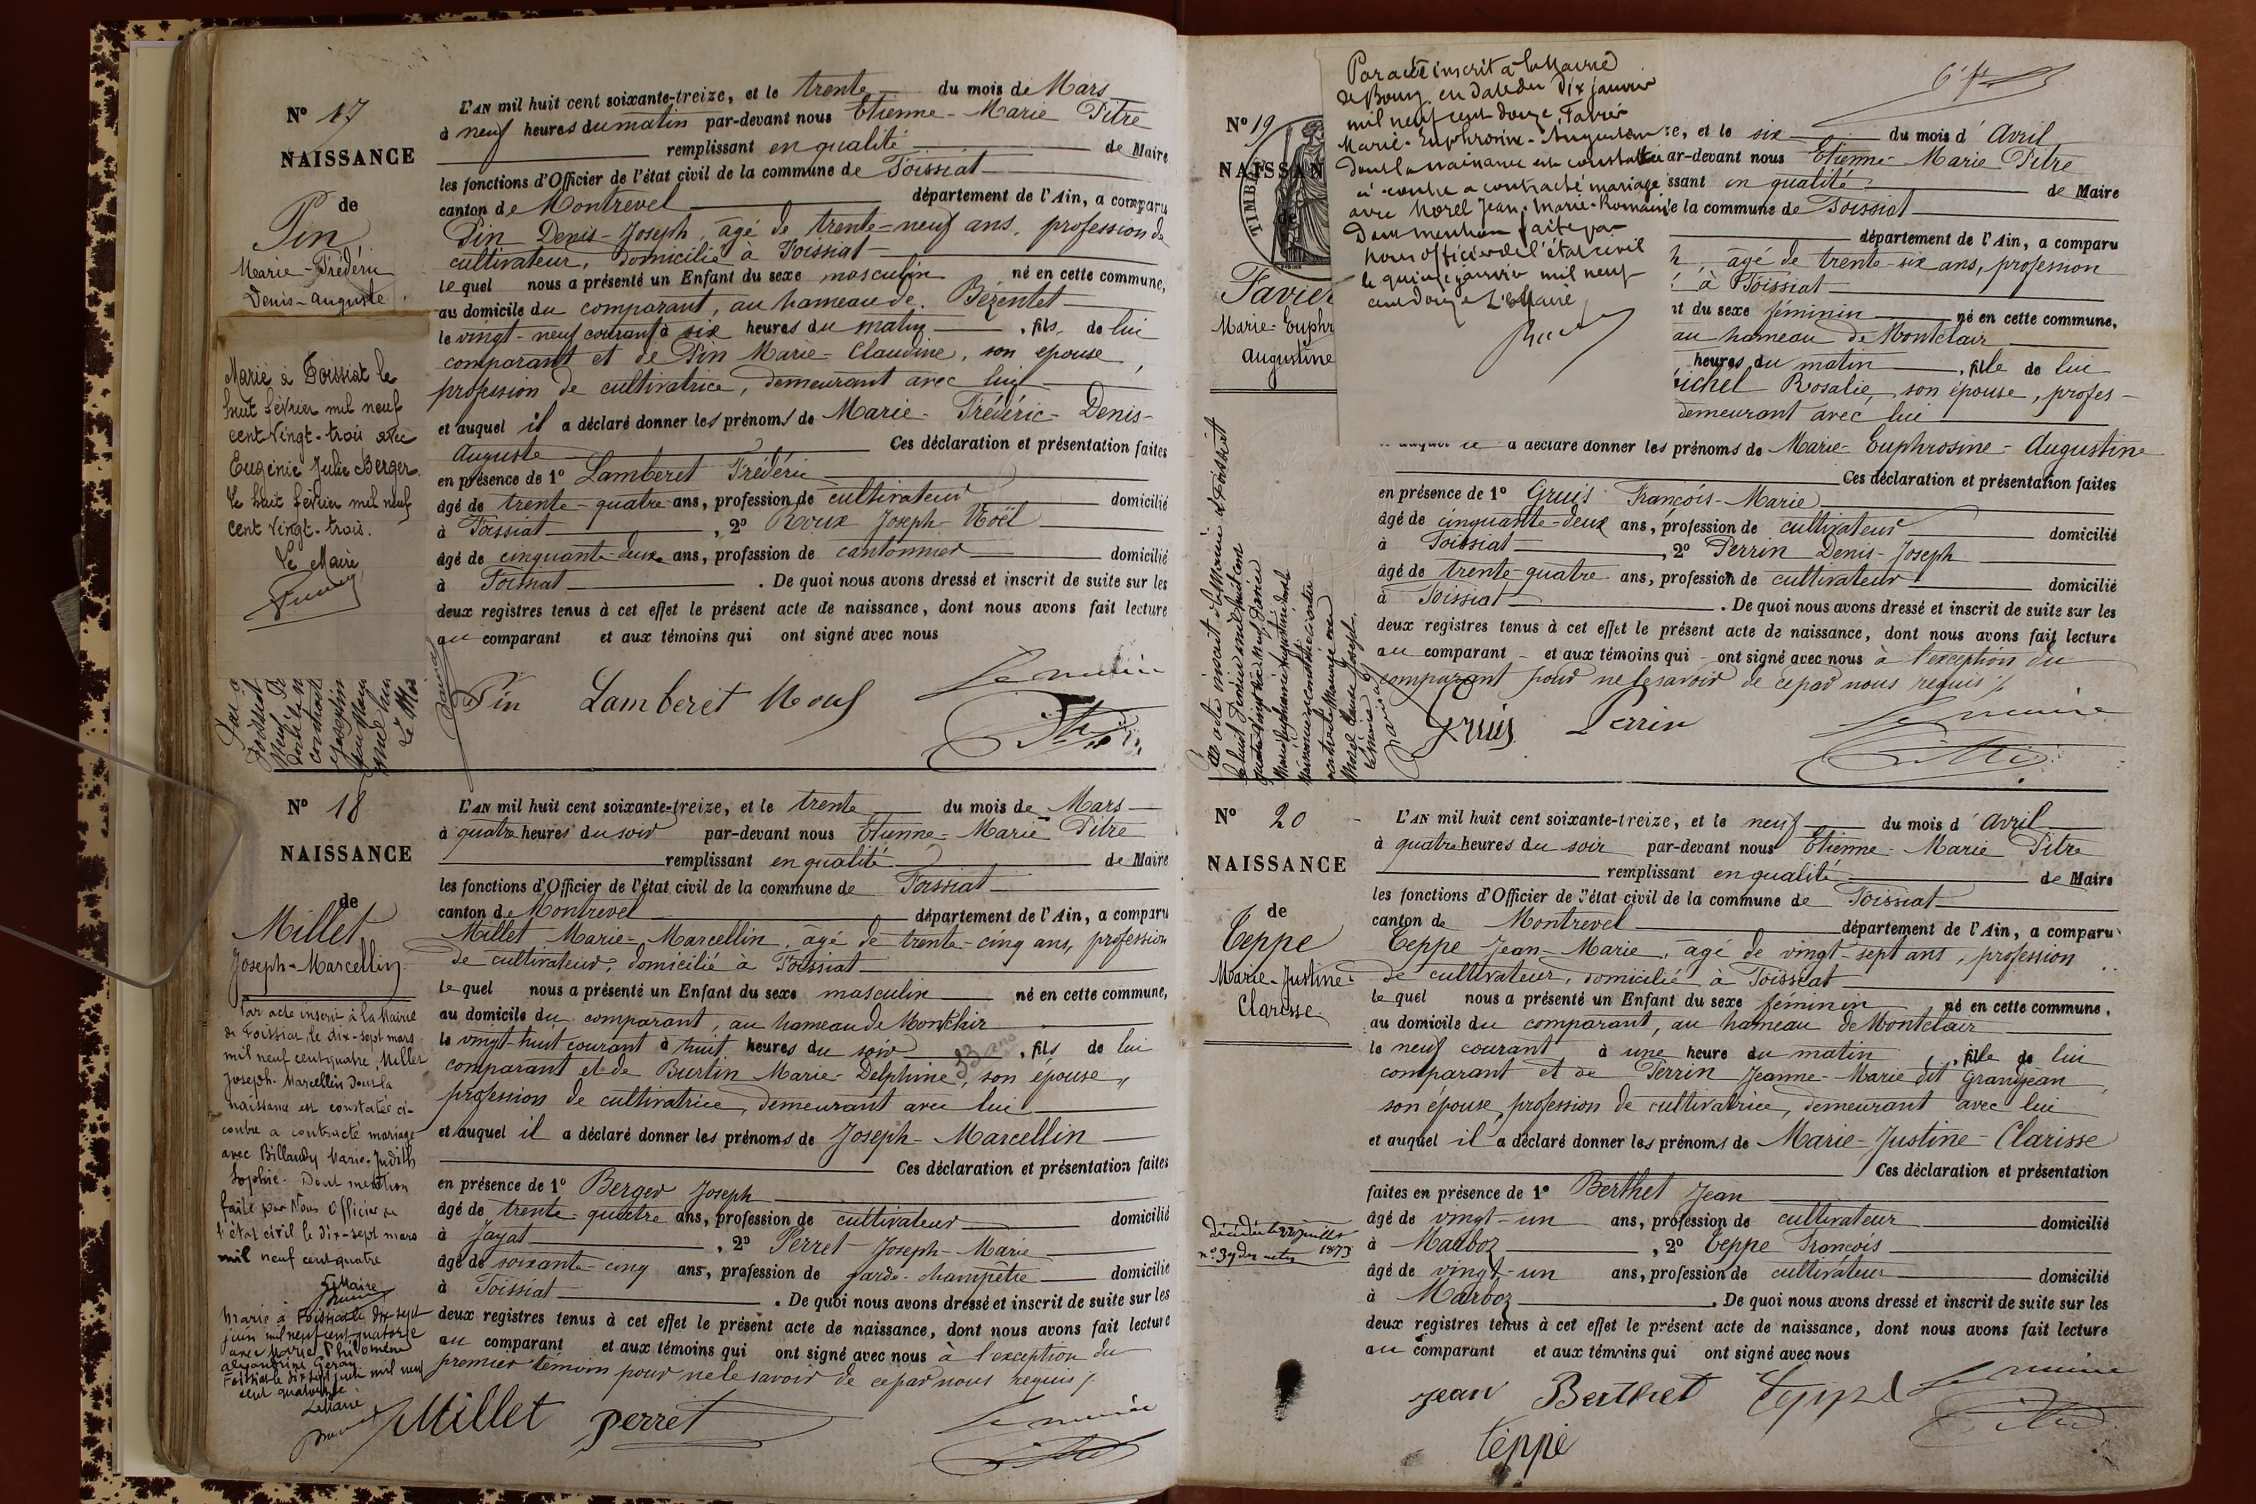 N° 17
NAISSANCE
de
Pin
Marie-Frédéric
Denis-Auguste
Marié à Foissiat le
huit février mil neuf
cent vingt-trois avec
Eugénie Julie Berger.
Le huit février mil neuf
cent vingt-trois.
Le Maire,
L'AN mil huit cent soixante-treize, et le trente du mois de Mars
à neuf heures du matin par-devant nous Etienne-Marie Pitre
remplissant en qualité de Maire
les fonctions d'Officier de l'état civil de la commune de Foissiat
canton de Montrevel département de l'Ain, a comparu
Pin Denis-Joseph, agé de trente-neuf ans, profession de
cultivateur, domicilié à Foissiat
lequel nous a présenté un Enfant du sexe masculin né en cette commune,
au domicile du comparant, au hameau de Bézentet
le vingt-neuf courant à six heures du matin, fils de lui
comparant et de Pin Marie-Claudine, son épouse,
profession de cultivatrice, demeurant avec lui
et auquel il a déclaré donner les prénoms de Marie-Frédéric-Denis-
Auguste Ces déclaration et présentation faites
en présence de 1° Lamberet Frédéric
âgé de trente-quatre ans, profession de cultivateur domicilié
à Foissiat, 2° Roux Joseph-Noël
âgé de cinquante-deux ans, profession de cantonnier domicilié
à Foissiat. De quoi nous avons dressé et inscrit de suite sur les
deux registres tenus à cet effet le présent acte de naissance, dont nous avons fait lecture
au comparant et aux témoins qui ont signé avec nous
Pin Lamberet Roux Le maire
Pitre
N° 18
NAISSANCE
de
Millet
Joseph-Marcellin
Par acte inscrit à la Mairie
de Foissiat, le dix-sept mars
mil neuf cent quatre, Millet
Joseph-Marcellin dont la
naissance est constatée ci-
contre a contracté mariage
avec Billandy Marie-Judith
Sophie. Dont mention
faite par Nous Officier de
l'état civil le dix-sept mars
mil neuf cent quatre
Le Maire
Marié à Foissiat le dix-sept
juin mil neuf cent quatorze
avec Marie Philomène
Alexandrine Geray
Foissiat le dix-sept juin mil neuf
cent quatorze
Le Maire
L'AN mil huit cent soixante-treize, et le trente du mois de Mars
à quatre heures du soir par-devant nous Etienne-Marie Pitre
remplissant en qualité de Maire
les fonctions d'Officier de l'état civil de la commune de Foissiat
canton de Montrevel département de l'Ain, a comparu
Millet Marie-Marcellin, âgé de trente-cinq ans, profession
de cultivateur, domicilié à Foissiat
lequel nous a présenté un Enfant du sexe masculin né en cette commune,
au domicile du comparant, au hameau de Montclair
le vingt-huit courant à huit heures du soir, fils de lui
comparant et de Burtin Marie-Delphine, 33 ans son épouse,
profession de cultivatrice, demeurant avec lui
et auquel il a déclaré donner les prénoms de Joseph-Marcellin
Ces déclaration et présentation faites
en présence de 1° Berger Joseph
âgé de trente-quatre ans, profession de cultivateur domicilié
à Jayat, 2° Perret Joseph-Marie
âgé de soixante-cinq ans, profession de garde-champêtre domicilié
à Foissiat. De quoi nous avons dressé et inscrit de suite sur les
deux registres tenus à cet effet le présent acte de naissance, dont nous avons fait lecture
au comparant et aux témoins qui ont signé avec nous à l'exception du
premier témoin pour ne le savoir de ce par nous requis /.
Millet Perret Le maire
Pitre
6e ft
Par acte inscrit à la Mairie
de Bourg en date du dix janvier
mil neuf cent douze, Favier
Marie-Euphrosine-Augustine
dont la naissance est constatée
ci-contre a contracté mariage
avec Morel Jean-Marie-Romain
Dont mention faite par
nous officier de l'état civil
le quinze janvier mil neuf
cent douze Le Maire,
N° 19
NAISSAN
TIMBRE
de
Favier
Marie-Euphr
Augustine
re, et le six du mois d'Avril
ar-devant nous Etienne-Marie Pitre
issant en qualité de Maire
e la commune de Foissiat
département de l'Ain, a comparu
agé de trente-six ans, profession
à Foissiat
nt du sexe féminin né en cette commune,
au hameau de Montclair
heures du matin, fille de lui
ichel Rosalie, son épouse, profes-
demeurant avec lui
et auquel il a déclaré donner les prénoms de Marie-Euphrosine-Augustine
Ces déclaration et présentation faites
en présence de 1° Gruis François-Marie
âgé de cinquante-deux ans, profession de cultivateur domicilié
à Foissiat, 2° Perrin Denis-Joseph
âgé de trente-quatre ans, profession de cultivateur domicilié
à Foissiat. De quoi nous avons dressé et inscrit de suite sur les
deux registres tenus à cet effet le présent acte de naissance, dont nous avons fait lecture
au comparant et aux témoins qui ont signé avec nous à l'exception du
comparant pour ne le savoir de ce par nous requis /.
Gruis Perrin Le maire
Pitre
N° 20
NAISSANCE
de
Teppe
Marie-Justine-
Clarisse.
décédée le 22 juillet
n° 39 des actes 1873
L'AN mil huit cent soixante-treize, et le neuf du mois d'Avril
à quatre heures du soir par-devant nous Etienne-Marie Pitre
remplissant en qualité de Maire
les fonctions d'Officier de l'état civil de la commune de Foissiat
canton de Montrevel département de l'Ain, a comparu
Teppe Jean-Marie, agé de vingt-sept ans, profession
de cultivateur, domicilié à Foissiat
lequel nous a présenté un Enfant du sexe féminin né en cette commune,
au domicile du comparant, au hameau de Montclair
le neuf courant à une heure du matin, fille de lui
comparant et de Perrin Jeanne-Marie dit Grandjean,
son épouse, profession de cultivatrice, demeurant avec lui
et auquel il a déclaré donner les prénoms de Marie-Justine-Clarisse
Ces déclaration et présentation
faites en présence de 1° Berthet Jean
âgé de vingt-un ans, profession de cultivateur domicilié
à Marboz, 2° Teppe François
âgé de vingt-un ans, profession de cultivateur domicilié
à Marboz. De quoi nous avons dressé et inscrit de suite sur les
deux registres tenus à cet effet le présent acte de naissance, dont nous avons fait lecture
au comparant et aux témoins qui ont signé avec nous
Jean Berthet Teppe Le maire
Teppe Pitre